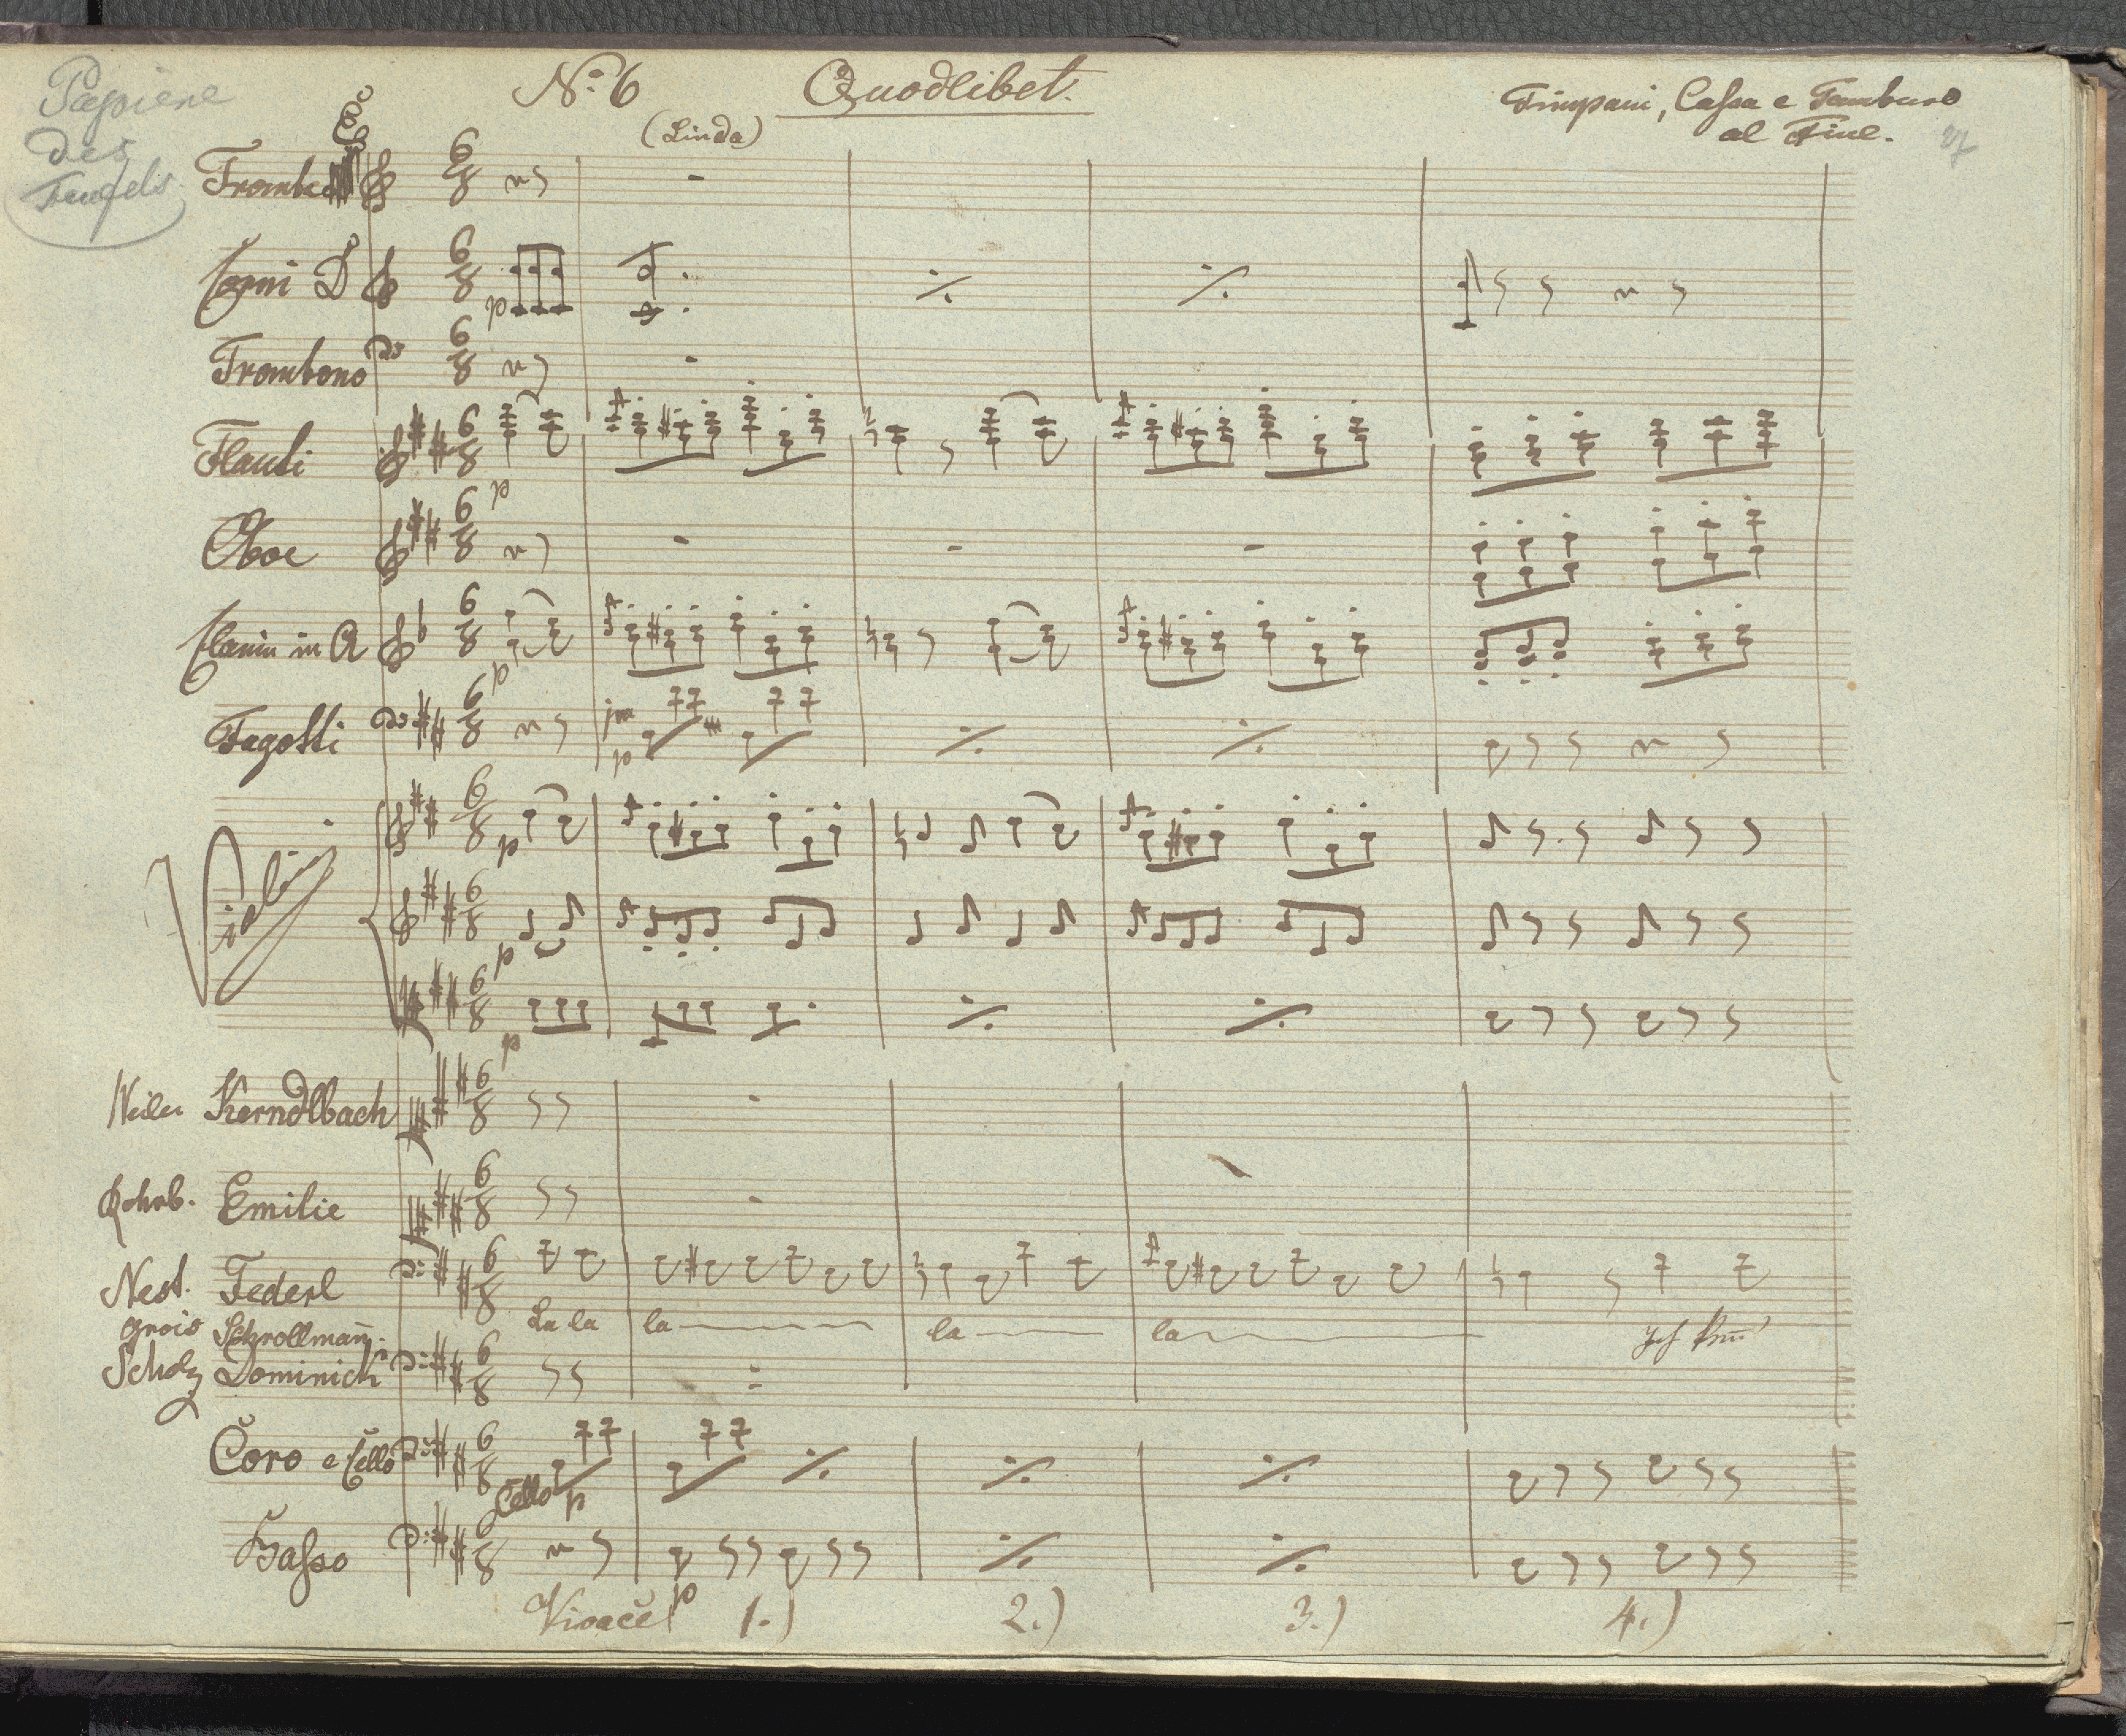 Papiere
des
Teufels
No. 6 Quodlibet.
(Linda)
Timpani, Cassa e Tamburo
al Fine.
Trombe
Corni D
p
Trombono
Flauti
p
Oboe
Clarin in A
p
Fagotti
p
Violini
p
p
p
Kerndlbach
Rohrb. Emilie
Nest. Federl
La la la la la
Ich
Grois Schrollmañ
Scholz Dominick
Coro e Cello
Cello p
Basso
p
Vivace 1.) 2.) 3.) 4.)